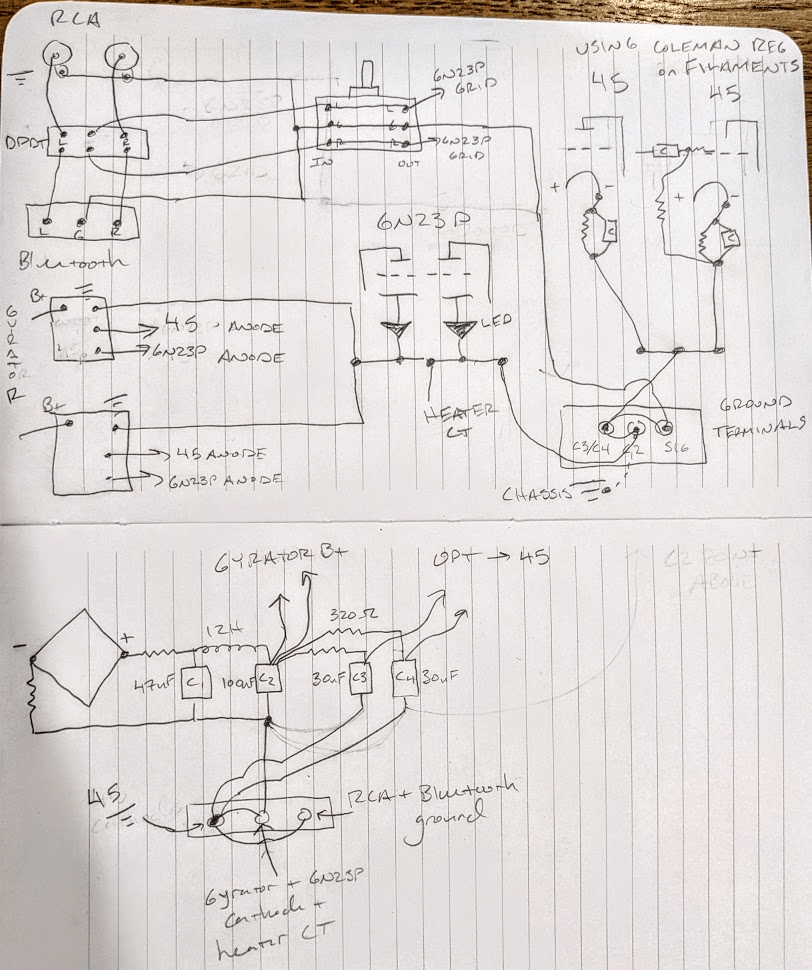 RCA
USING COLEMAN REG
on FILAMENTS
45
45
6N23P
GRID
6N23P
GRID
DPDT
L
R
L
G
R
L
G
R
IN
OUT
C
+
-
+
-
C
C
L
G
R
Bluetooth
6N23P
LED
B+
GYRATOR
45 ANODE
6N23P ANODE
HEATER
CT
B+
45 ANODE
6N23P ANODE
GROUND
TERMINALS
C3/C4
C2
SIG
CHASSIS
GYRATOR B+
OPT → 45
C2 POINT
ABOVE
-
+
12H
320Ω
47uF
C1
100uF
C2
30uF
C3
C4
30uF
45
RCA + Bluetooth
ground
Gyrator + 6N23P
Cathode +
heater CT